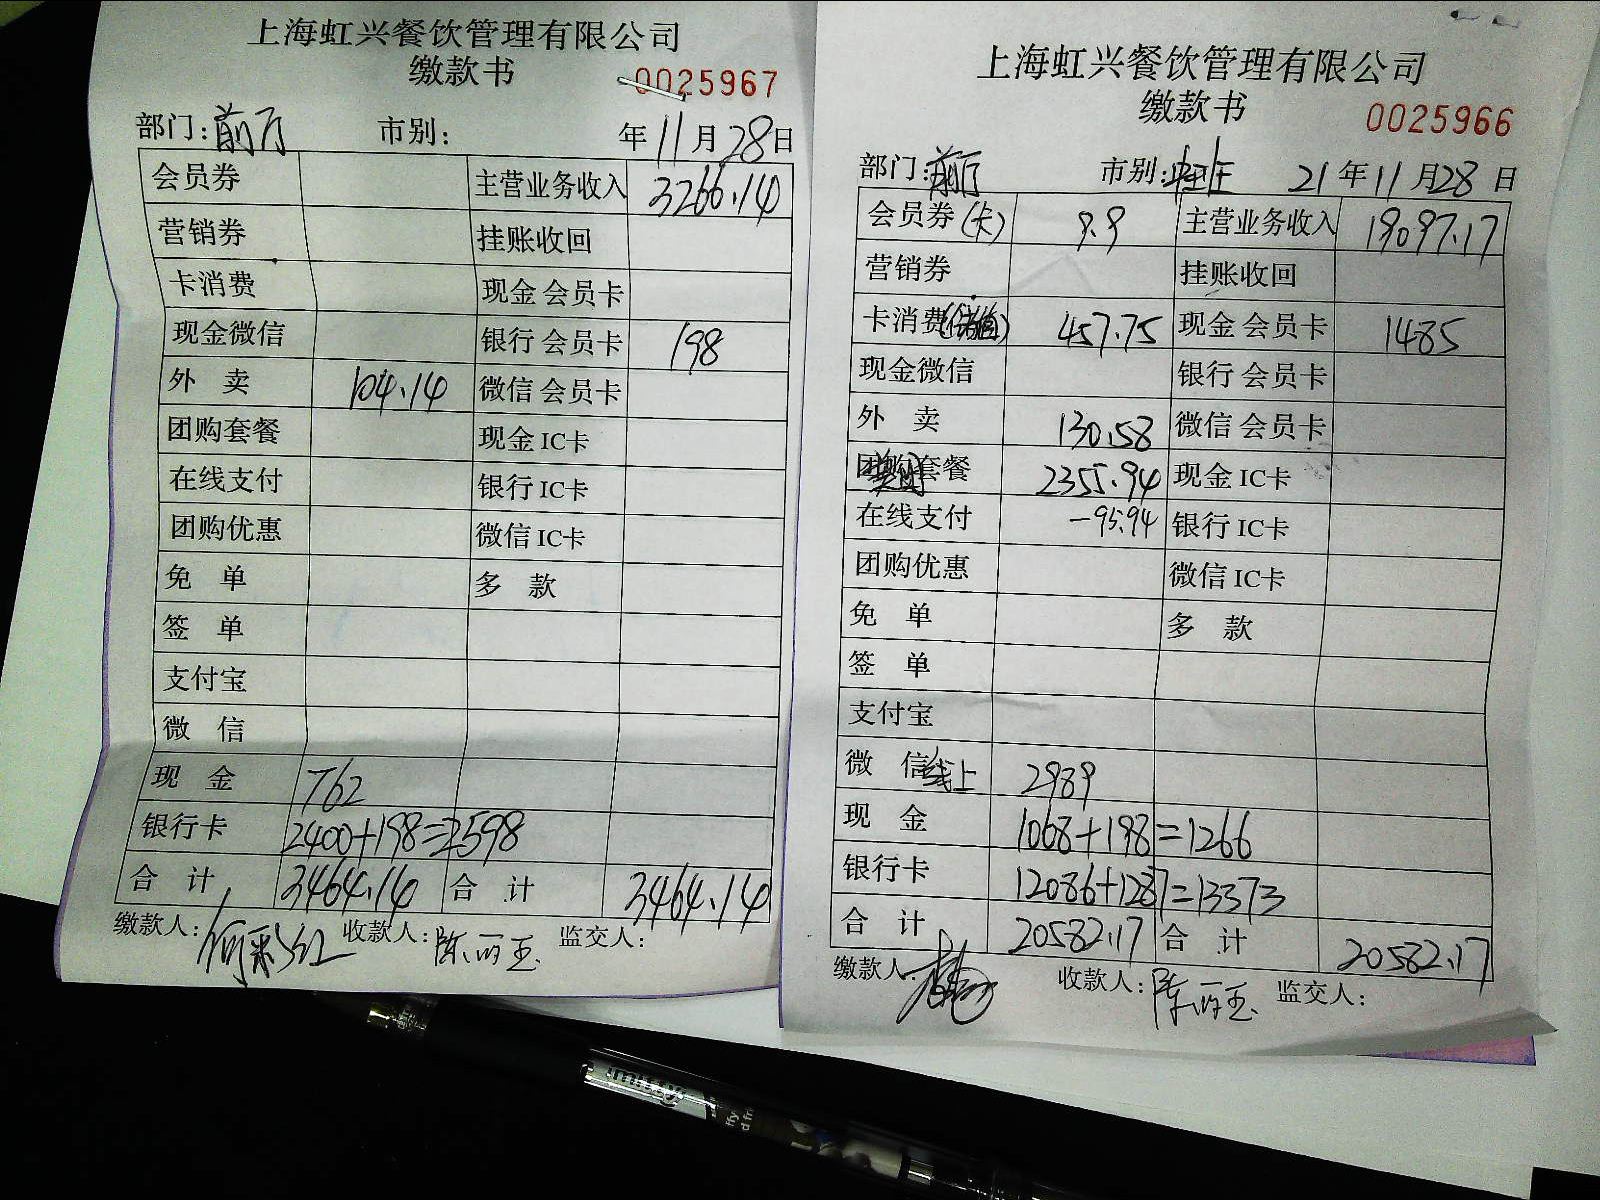 上海虹兴餐饮管理有限公司
缴款书
0025967
部门:前厅 市别: 年11月28日
会员券 主营业务收入 3266.14
营销券 挂账收回
卡消费 现金会员卡
现金微信 银行会员卡 198
外卖 104.14 微信会员卡
团购套餐 现金IC卡
在线支付 银行IC卡
团购优惠 微信IC卡
免单 多款
签单
支付宝
微信
现金 762
银行卡 2400+198=2598
合计 3464.14 合计 3464.14
缴款人:何彩红 收款人:陈丽玉 监交人:
上海虹兴餐饮管理有限公司
缴款书
0025966
部门:前厅 市别: 21年11月28日
会员券(卡) 9.9 主营业务收入 19097.17
营销券 挂账收回
卡消费(储值) 457.75 现金会员卡 1485
现金微信 银行会员卡
外卖 130.58 微信会员卡
团购套餐 2355.94 现金IC卡
在线支付 -95.94 银行IC卡
团购优惠 微信IC卡
免单 多款
签单
支付宝
微信线上 2989
现金 1068+198=1266
银行卡 12086+1287=13373
合计 20582.17 合计 20582.17
缴款人: 收款人:陈丽玉 监交人: